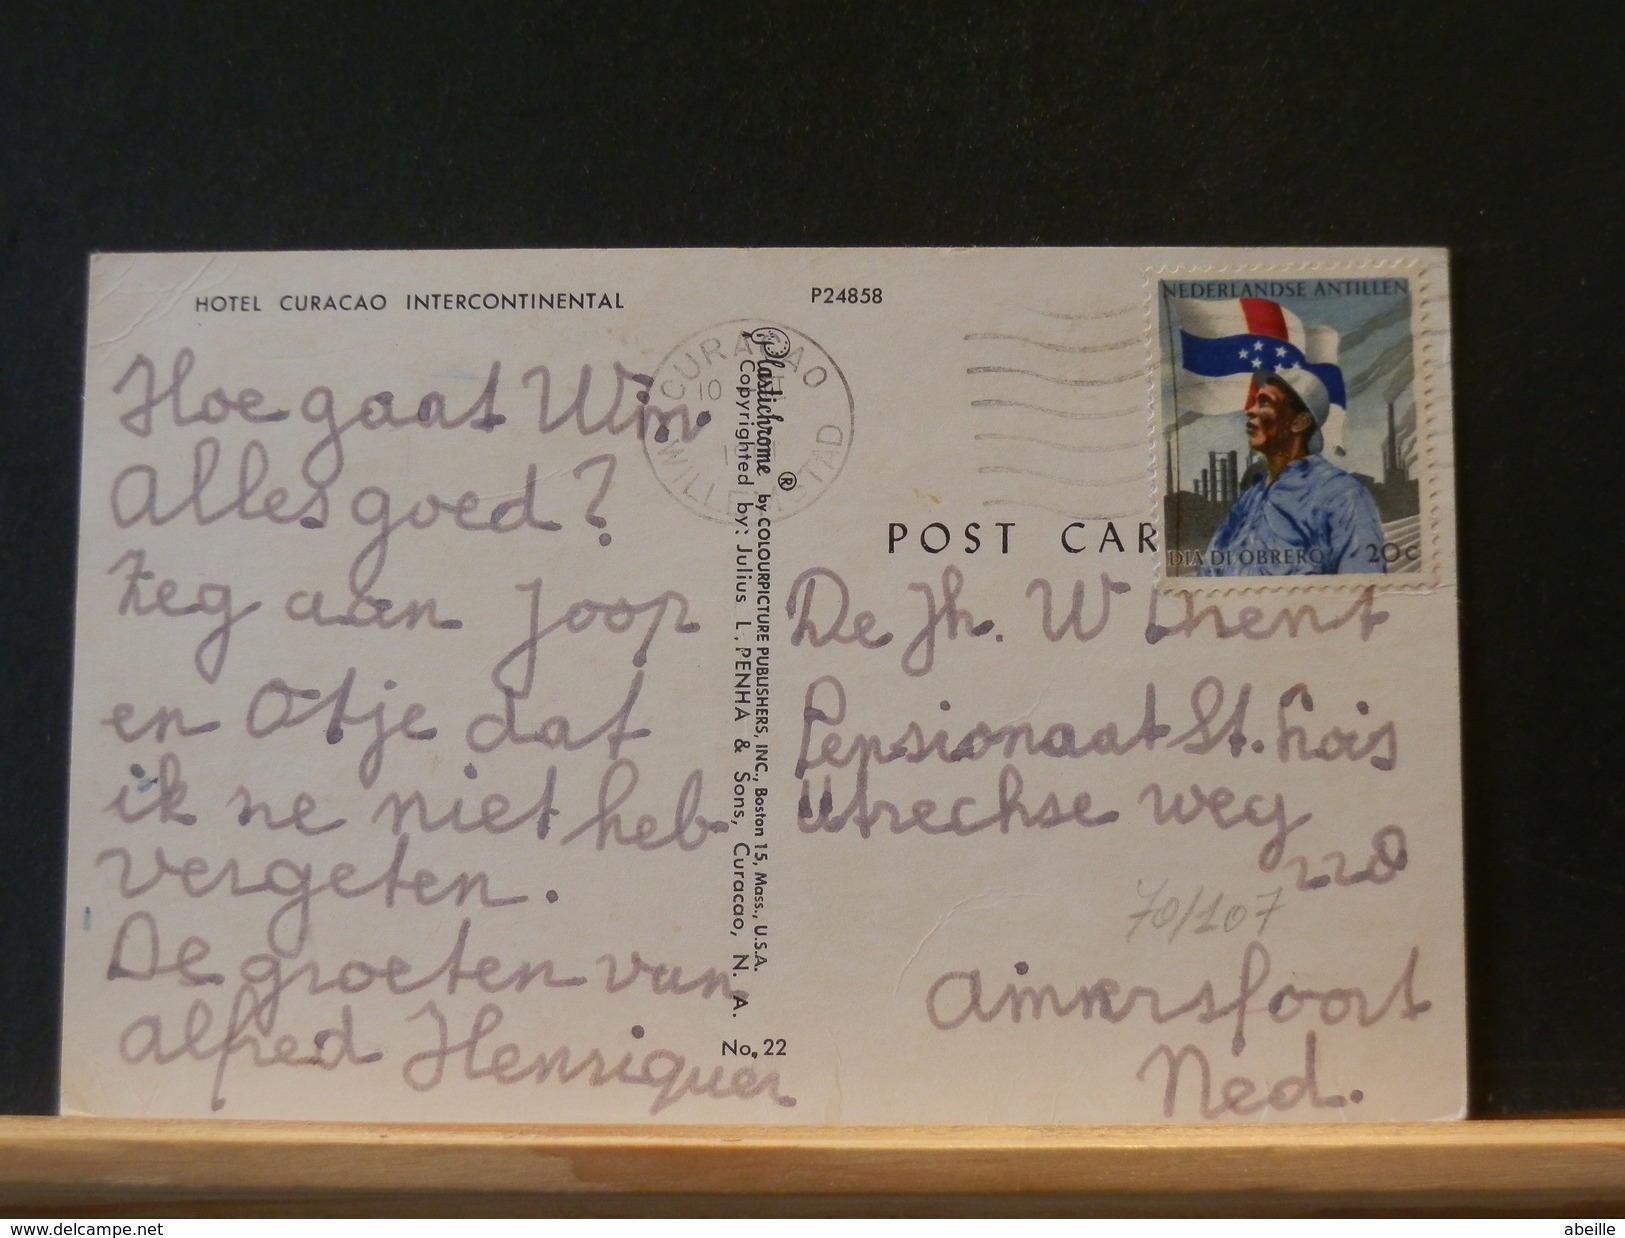 HOTEL CURACAO INTERCONTINENTAL
P24858
Hoe gaat Wim
Alles goed?
Zeg aan Joop
en Otje dat
ik ze niet heb
vergeten.
De groeten van
Alfred Henriquez
Plastichrome ® by COLOURPICTURE PUBLISHERS, INC., Boston 15, Mass., U.S.A.
Copyrighted by: Julius L. PENHA & Sons, Curacao, N. A.
No. 22
CURACAO
10
WILLEMSTAD
NEDERLANDSE ANTILLEN
DIA DI OBRERO 20c
POST CAR
De Jh. W
Pensionaat St. Lois
Utrechse weg
220
70/107
Amersfoort
Ned.
delcampe.net
abeille